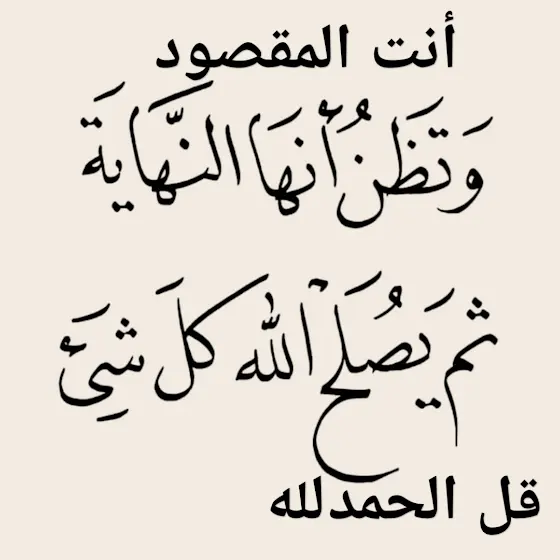 أنت المقصود
وَتَظُنُ أَنهَا النَّهَايَة
ثم يَصُلح الله كلَ شَئ
قل الحمدلله